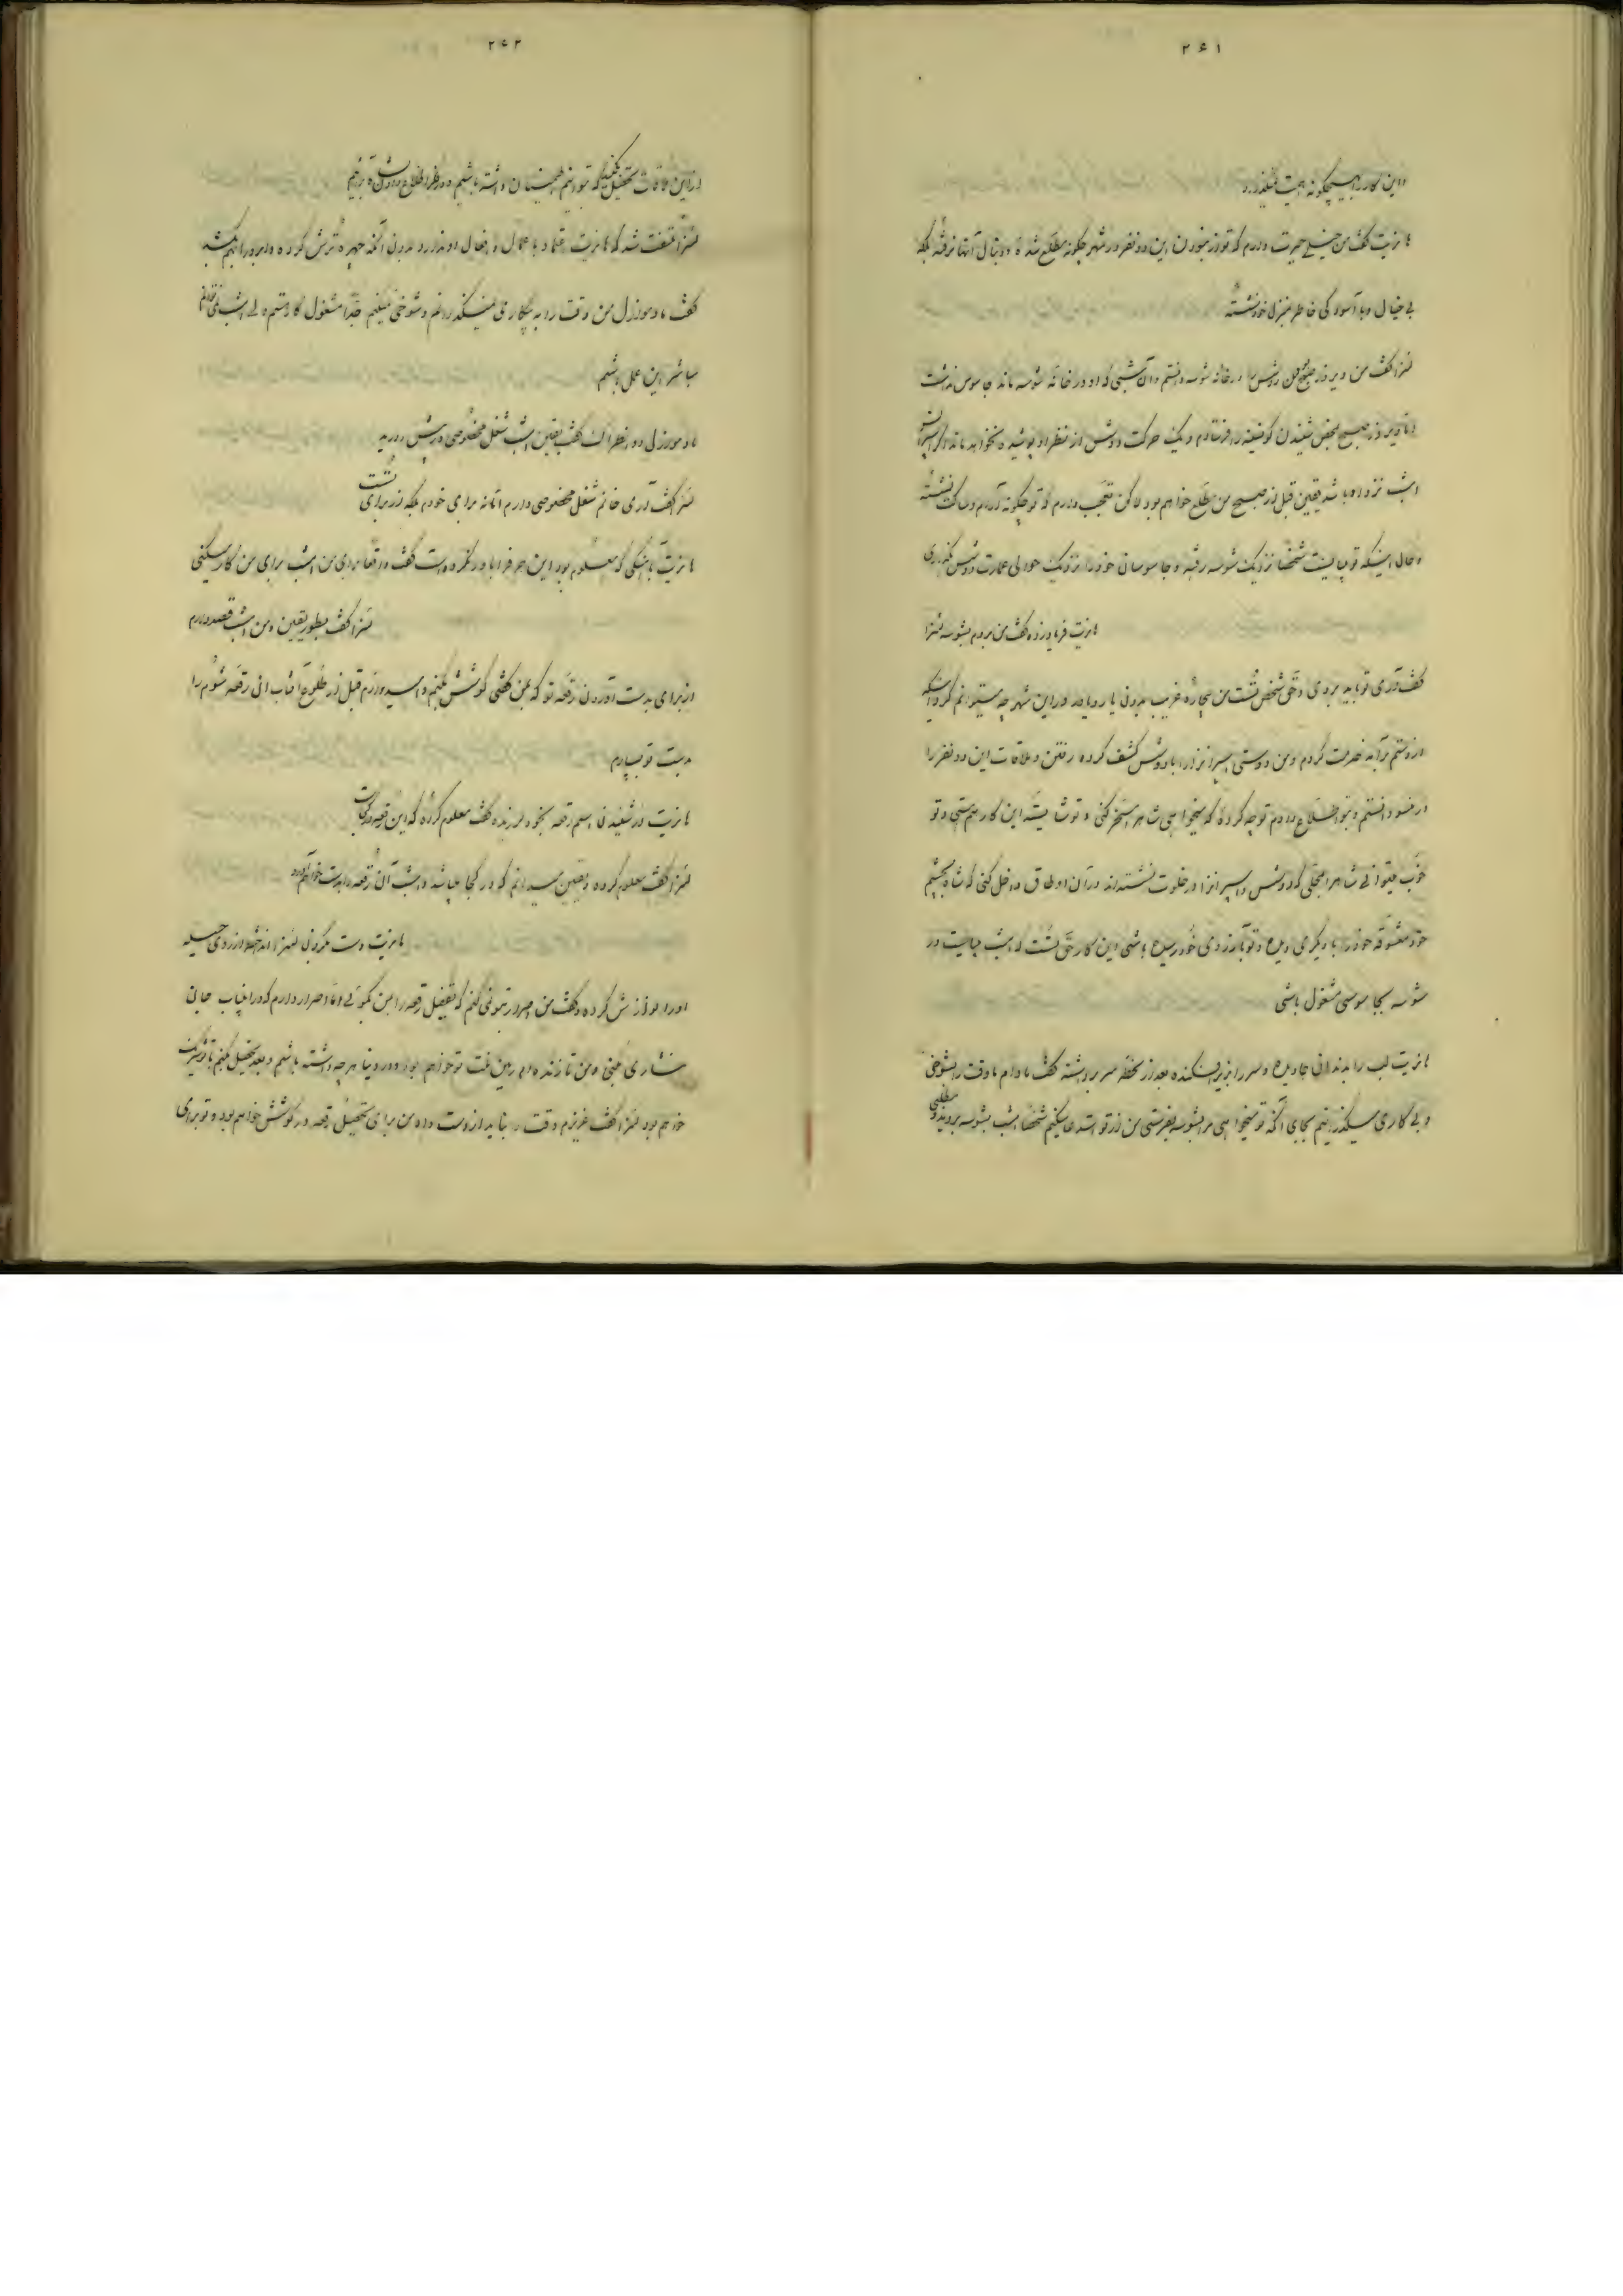 ۲۶۱
و این کار را بهیچگونه اهمیت نمیگذارد
هانریت گفت من خیلی حیرت دارم که تو از نبودن این دو نفر در شهر چگونه مطلع شده و دنبال آنها نرفته بلکه
بی خیال و با آسودگی خاطر منزل خود نشسته
گفت من دیروز صبح در خانه شوسه دانستم و آن شبی که او در خانه شوسه ماند جاسوس نداشت
اما دیروز صبح بمحض شنیدن فرستادم و یک حرکت دوشس از نظر او پوشیده نخواهد ماند
امشب نزد او باشد یقین قبل از صبح من مطلع خواهم بود لاکن تعجب دارم که تو چگونه آرام و ساکت نشسته
و حال اینکه تو میبایست شخصا نزدیک شوسه رفته و جاسوسان خود را نزدیک حوالی عمارت دوشس بگذاری
هانریت فریاد زده گفت من بروم بشوسه
گفت آری تو باید بروی وقتی شخص مثل من بیچاره غریب بدون یار و یاور در این شهر چه میتوانم کرد
از دستم برآمد خدمت کردم و من دوستی را با دوشس کشف کرده رفتن و ملاقات این دو نفر را
دانستم و بتو اطلاع دادم توجه کرده که میخواهی شاه را مسخر کنی و تو شایسته این کار هستی و تو
خوب میتوانی شاه را بمحلی که دوشس و در خلوت نشسته اند در آن اوطاق داخل کنی که شاه بچشم
خود معشوقه خود را با دیگری دیده و تو بآرزوی خود رسیده باشی این کار حق تست امشب میبایست در
شوسه بجاسوسی مشغول باشی
هانریت لب را بدندان جاویده و سر را بزیر افکنده بعد از لحظه سر برداشته گفت مادام ما وقت را بشوخی
و بی کاری میگذرانیم بجای آنکه تو میخواهی مرا بشوسه بفرستی من از تو استدعا میکنم شخصا امشب بشوسه بروید و مطلبی
۲۶۲
از این ملاقات تحصیل کنید که بتوانیم اطمینان داشته باشیم و در نظر اطلاع دادن شاه برآئیم
ملتفت شد که هانریت اعتماد باعمال و افعال او ندارد بدون آنکه چهره ترش کرده و ابرو را بهم کشد
گفت مادموازل من وقت را به بیکاری نمیگذرانم و شوخی نمیکنم جدا مشغول کار هستم ولی امشب نمیتوانم
مباشر این عمل باشم
مادموازل گفت یقین امشب شغل مخصوصی در پیش دارید
گفت آری خانم شغل مخصوصی دارم اما نه برای خودم بلکه از برای تست
هانریت که معلوم بود این حرف را باور نکرده است گفت واقعا برای من امشب برای من کار میکنی
گفت بطور یقین و من امشب قصد دارم
از برای بدست آوردن رقعه تو که بمن گفتی کوشش بکنم و امیدوارم قبل از طلوع آفتاب آن رقعه شوم را
بدست تو بسپارم
هانریت از شنیدن اسم رقعه بخود لرزیده گفت معلوم کرده که این رقعه در کجاست
گفت معلوم کرده و یقین میدانم که در کجا میباشد و امشب آن رقعه را بدست خواهم آورد
هانریت دست بگردن انداخته از روی حیله
او را نوازش کرده و گفت من اصرار بتو نمی کنم که تفصیل رقعه را بمن بگوئی و اما اصرار دارم که در اینباب جان
نثاری کنی و من تا زنده ام رهین منت تو خواهم بود و در دنیا هر چه داشته باشم و بعد تحصیل کنم با تو شریک
خواهم بود گفت عزیزم وقت را نباید از دست داد من برای تحصیل رقعه در کوشش خواهم بود و تو برای